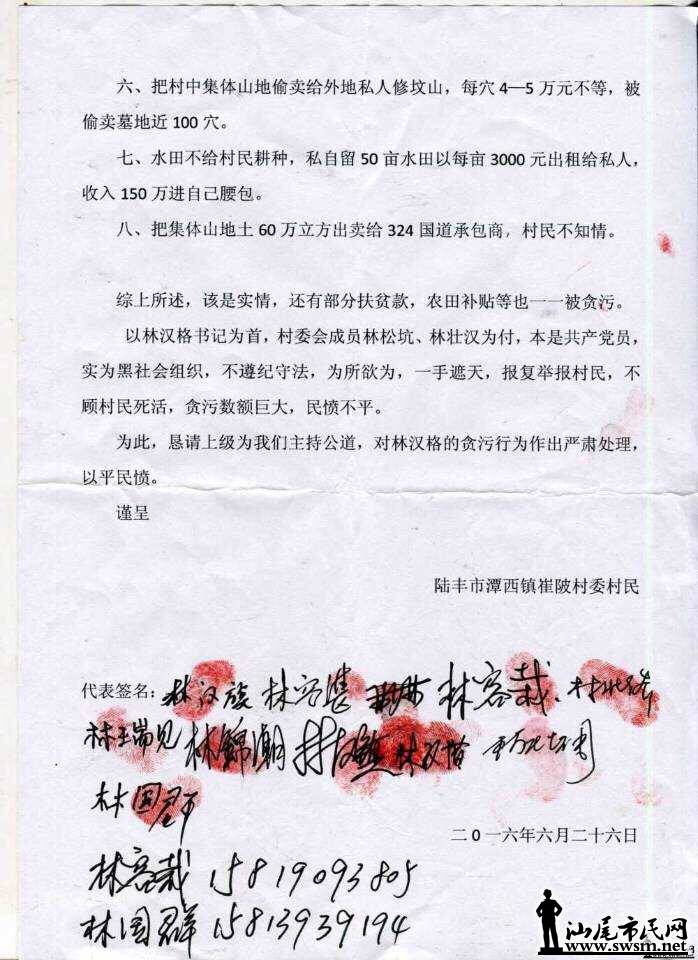 六、把村中集体山地偷卖给外地私人修坟山，每穴 4—5 万元不等，被
偷卖墓地近 100 穴。
七、水田不给村民耕种，私自留 50 亩水田以每亩 3000 元出租给私人，
收入 150 万进自己腰包。
八、把集体山地土 60 万立方出卖给 324 国道承包商，村民不知情。
综上所述，该是实情，还有部分扶贫款，农田补贴等也一一被贪污。
以林汉格书记为首，村委会成员林松坑、林壮汉为付，本是共产党员，
实为黑社会组织，不遵纪守法，为所欲为，一手遮天，报复举报村民，不
顾村民死活，贪污数额巨大，民愤不平。
为此，恳请上级为我们主持公道，对林汉格的贪污行为作出严肃处理，
以平民愤。
谨呈
陆丰市潭西镇崔陂村委村民
代表签名：林汉族 林容哉
林锦潮
林国群
二０一六年六月二十六日
林容哉 15819093805
林国群 15813939194
汕尾市民网
www.swsm.net